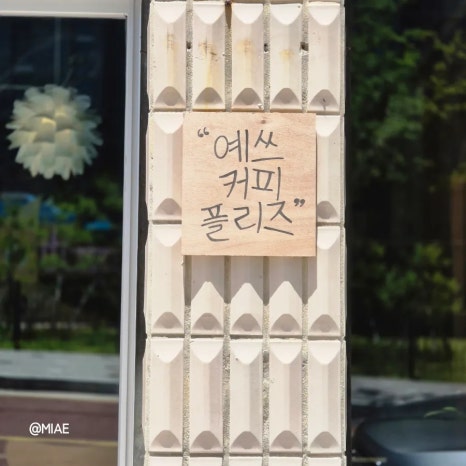 “예쓰
커피
플리즈”
@MIAE